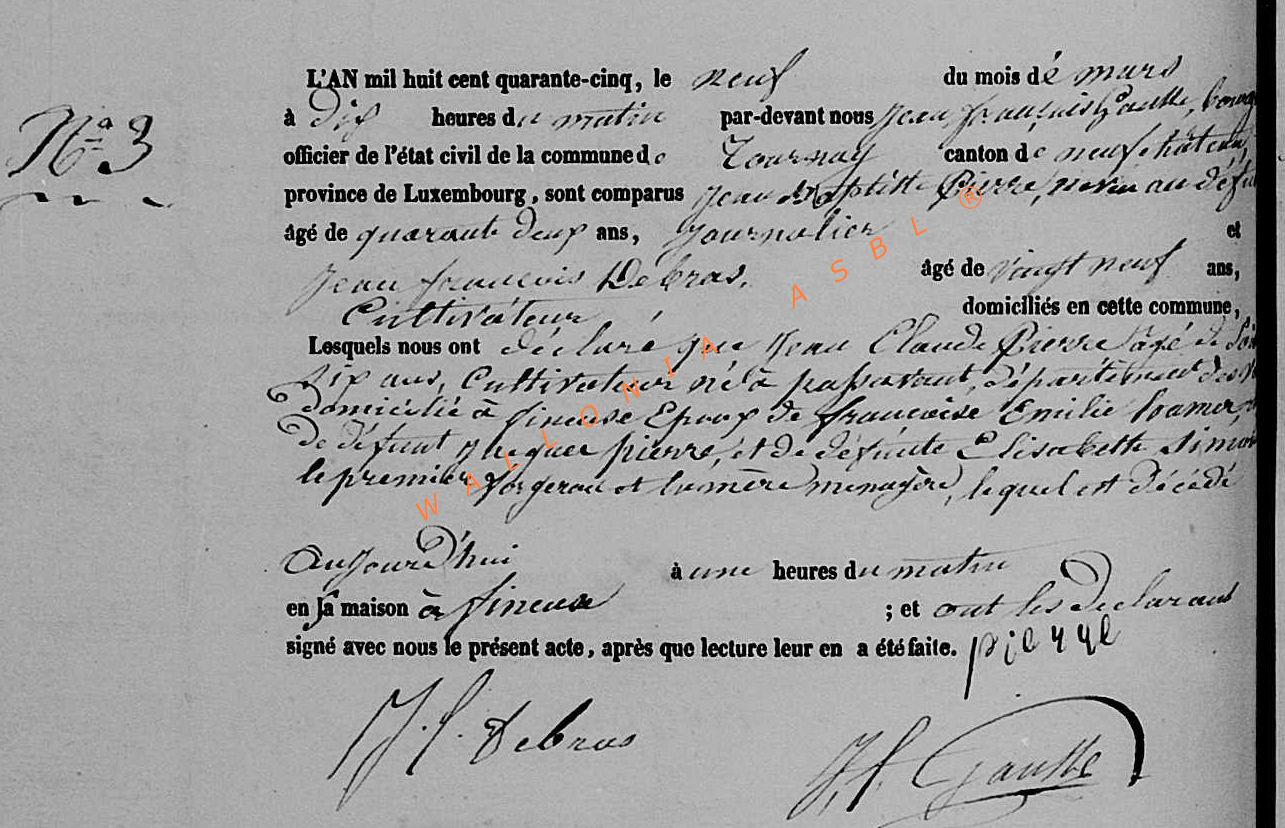 N° 3
L'AN mil huit cent quarante-cinq, le neuf du mois de mars
à dix heures du matin par-devant nous Jean françois Gausse,
officier de l'état civil de la commune de Tournay canton de neufchâteau,
province de Luxembourg, sont comparus Jean Baptiste Pierre, neveu au défu
âgé de quarante deux ans, Journalier et
Jean françois Debras, âgé de vingt neuf ans,
Cultivateur, domiciliés en cette commune,
Lesquels nous ont déclaré que Jean Claude Pierre âgé de
six ans, Cultivateur né à passavant, département des
domicilié à fineuse Epoux de françoise Emilie
de défunt pierre, et de défunte Elisabeth simon
le premier forgeron et la mère menagère, lequel est décédé
aujourd'hui à une heures du matin
en sa maison à fineuse ; et ont les déclarans
signé avec nous le présent acte, après que lecture leur en a été faite. pierre
J. f. Debras
J. f. Gausse
WALLONIA ASBL ®